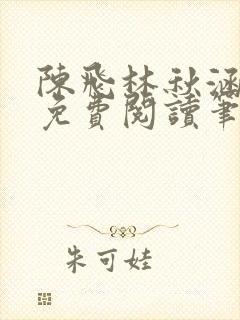 陳飛林秋涵
免費閱讀筆
朱可娃